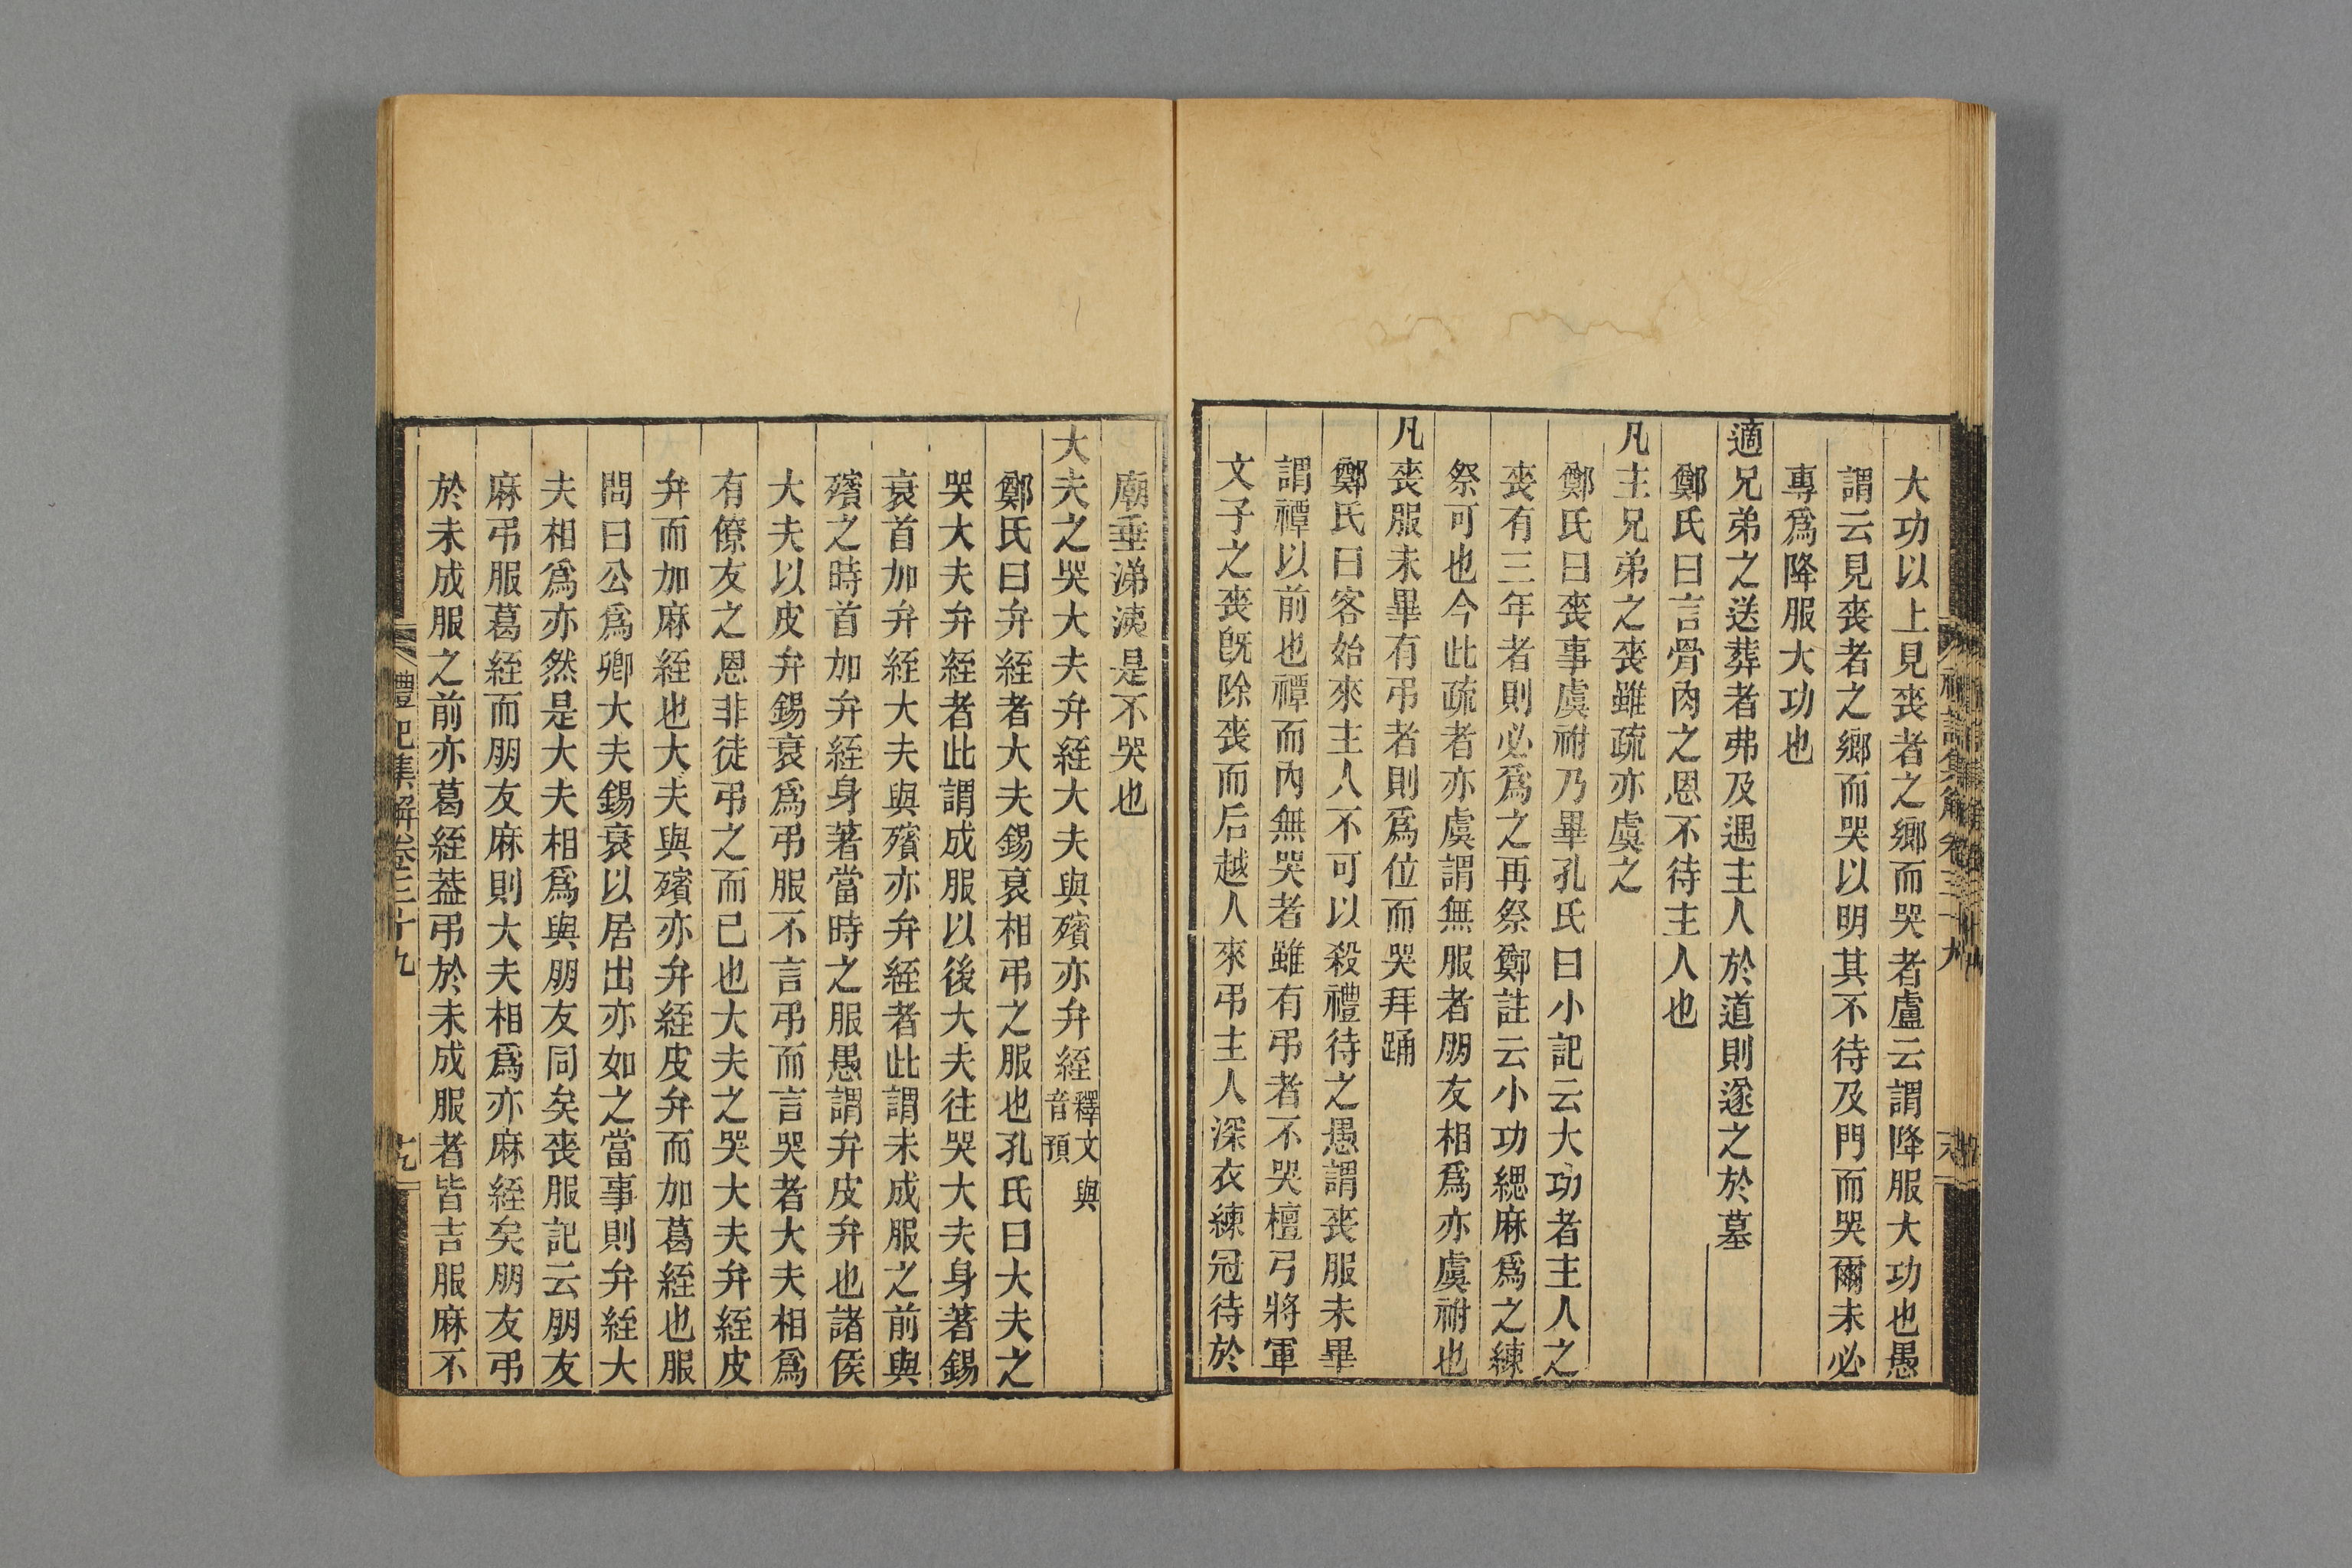 大功以上見喪者之鄉而哭者盧云謂降服大功也愚
謂云見喪者之鄉而哭以明其不待及門而哭爾未必
專爲降服大功也
適兄弟之送葬者弗及遇主人於道則遂之於墓
鄭氏曰言骨肉之恩不待主人也
凡主兄弟之喪雖疏亦虞之
鄭氏曰喪事虞祔乃畢孔氏曰小記云大功者主人之
喪有三年者則必爲之再祭鄭註云小功緦麻爲之練
祭可也今此疏者亦虞謂無服者朋友相爲亦虞祔也
凡喪服未畢有弔者則爲位而哭拜踊
鄭氏曰客始來主人不可以殺禮待之愚謂喪服未畢
謂禫以前也禫而內無哭者雖有弔者不哭檀弓將軍
文子之喪旣除喪而后越人來弔主人深衣練冠待於
廟垂涕洟是不哭也
大夫之哭大夫弁絰大夫與殯亦弁絰釋文與音預
鄭氏曰弁絰者大夫錫衰相弔之服也孔氏曰大夫之
哭大夫弁絰者此謂成服以後大夫往哭大夫身著錫
衰首加弁絰大夫與殯亦弁絰者此謂未成服之前與
殯之時首加弁絰身著當時之服愚謂弁皮弁也諸侯
大夫以皮弁錫衰爲弔服不言弔而言哭者大夫相爲
有僚友之恩非徒弔之而已也大夫之哭大夫弁絰皮
弁而加麻絰也大夫與殯亦弁絰皮弁而加葛絰也服
問曰公爲卿大夫錫衰以居出亦如之當事則弁絰大
夫相爲亦然是大夫相爲與朋友同矣喪服記云朋友
麻弔服葛絰而朋友麻則大夫相爲亦麻絰矣朋友弔
於未成服之前亦葛絰葢弔於未成服者皆吉服麻不
禮記集解卷三十九
十九